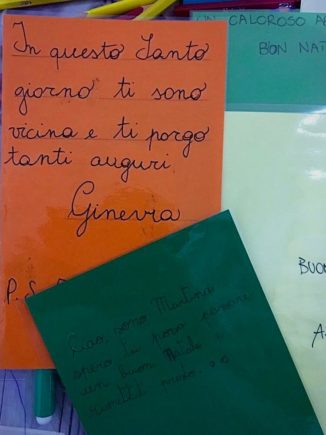 In questo Santo
giorno ti sono
vicina e ti porgo
tanti auguri
Ginevra
P.S.
UN CALOROSO A
BUON NAT
BUO
A
Ciao, sono Martina
spero tu possa passare
un buon Natale
rimettiti presto.